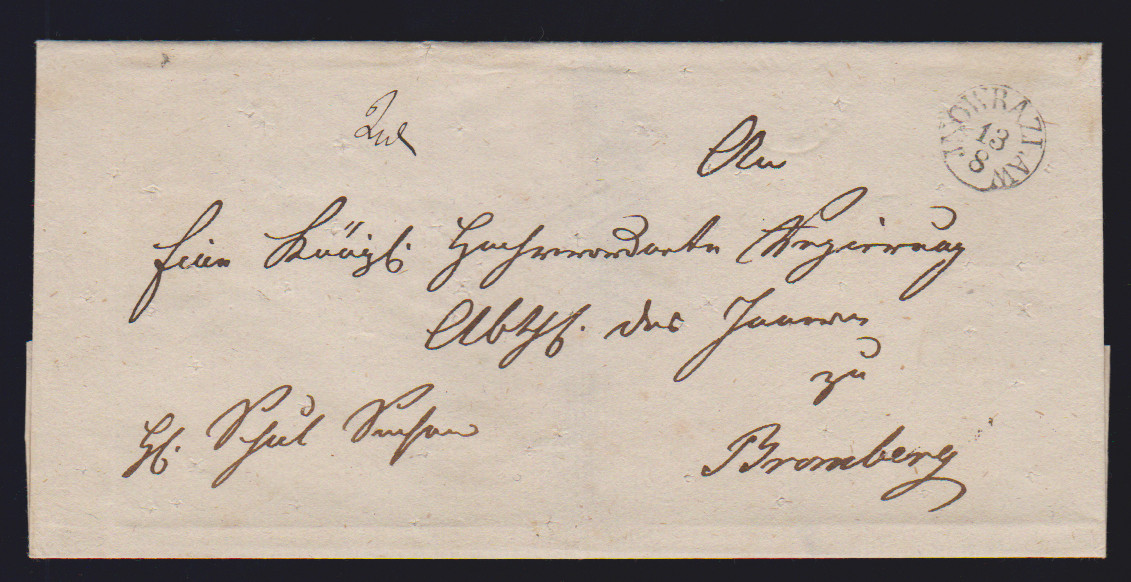 INOWRAZLAW
13
8
An
Eine Königl. Hochverordnete Regierung
Abthl. des Innern
zu
Hl. Schul Sachen
Bromberg